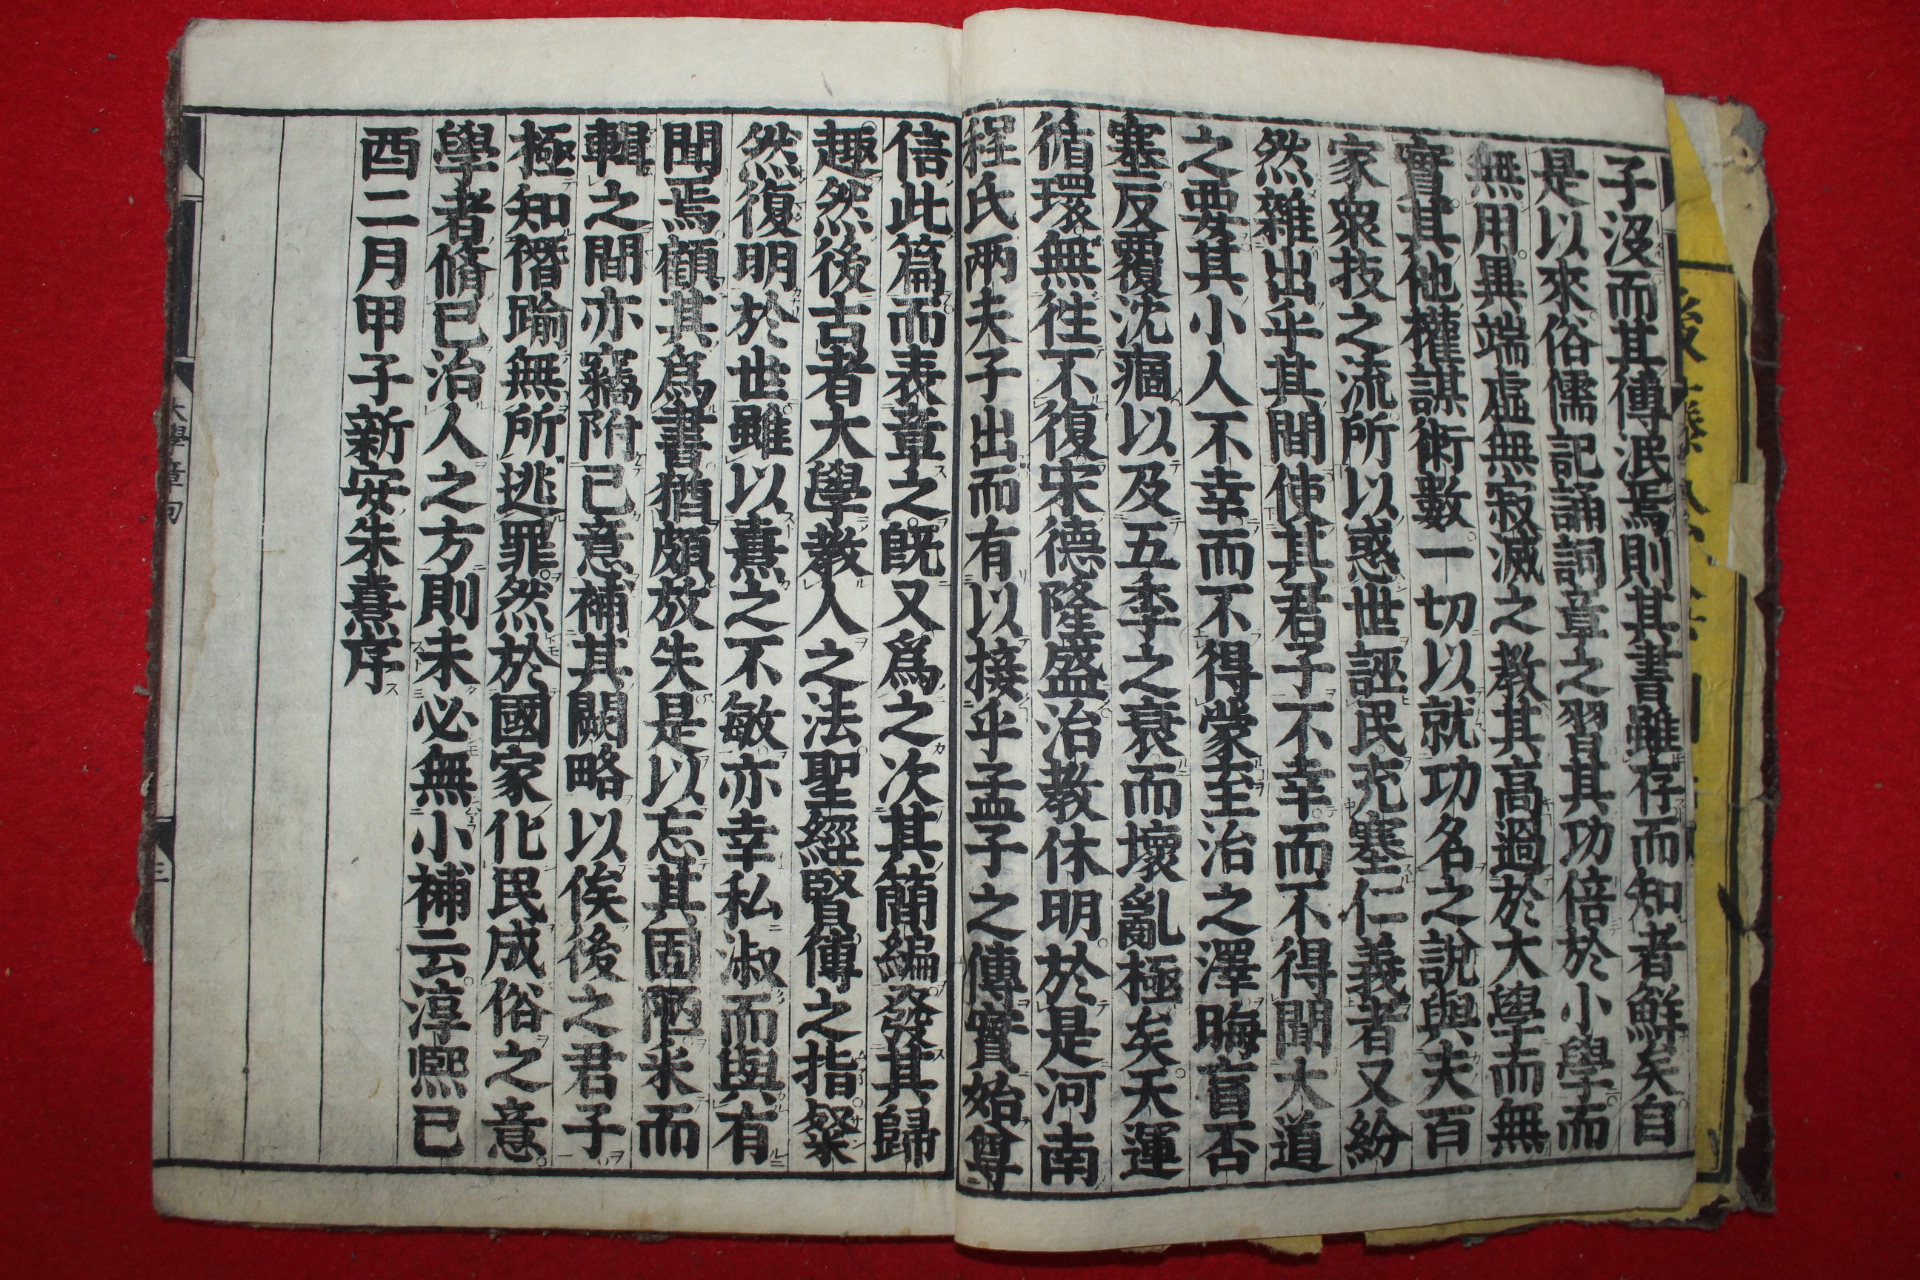 子沒而其傳泯焉則其書雖存而知者鮮矣自
是以來俗儒記誦詞章之習其功倍於小學而
無用異端虛無寂滅之教其高過於大學而無
實其他權謀術數一切以就功名之說與夫百
家衆技之流所以惑世誣民充塞仁義者又紛
然雜出乎其間使其君子不幸而不得聞大道
之要其小人不幸而不得蒙至治之澤晦盲否
塞反覆沈痼以及五季之衰而壞亂極矣天運
循環無往不復宋德隆盛治教休明於是河南
程氏兩夫子出而有以接乎孟子之傳實始尊
信此篇而表章之既又爲之次其簡編發其歸
趣然後古者大學教人之法聖經賢傳之指粲
然復明於世雖以熹之不敏亦幸私淑而與有
聞焉顧其爲書猶頗放失是以忘其固陋采而
輯之間亦竊附己意補其闕略以俟後之君子
極知僭踰無所逃罪然於國家化民成俗之意
學者脩己治人之方則未必無小補云淳熙己
酉二月甲子新安朱熹序
大學章句
三